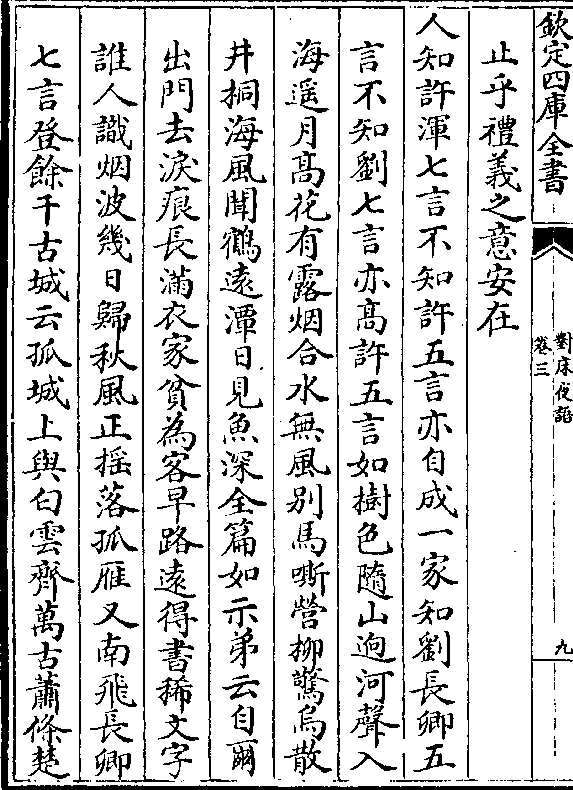 欽定四庫全書
對牀夜語
卷三
九
止乎禮義之意安在
人知許渾七言不知許五言亦自成一家知劉長卿五
言不知劉七言亦高許五言如樹色隨山逈河聲入
海遥月髙花有露烟合水無風别馬嘶營柳驚烏散
井桐海風聞鶴遠潭日見魚深全篇如示弟云自爾
出門去淚痕長滿衣家貧為客早路遠得書稀文字
誰人識烟波幾日歸秋風正揺落孤雁又南飛長卿
七言登餘干古城云孤城上與白雲齊萬古蕭條楚